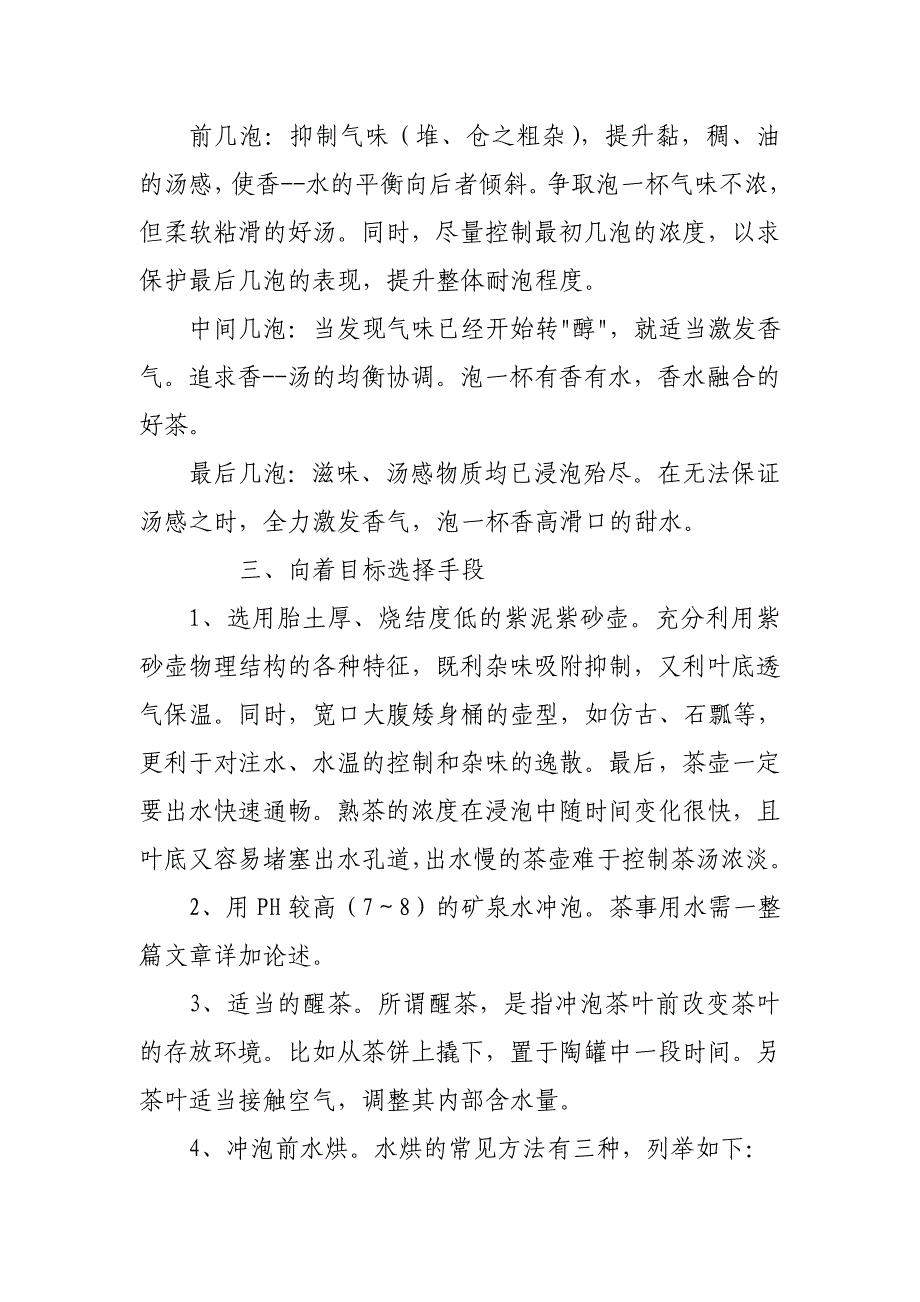 前几泡：抑制气味（堆、仓之粗杂），提升黏，稠、油
的汤感，使香--水的平衡向后者倾斜。争取泡一杯气味不浓，
但柔软粘滑的好汤。同时，尽量控制最初几泡的浓度，以求
保护最后几泡的表现，提升整体耐泡程度。
中间几泡：当发现气味已经开始转"醇"，就适当激发香
气。追求香--汤的均衡协调。泡一杯有香有水，香水融合的
好茶。
最后几泡：滋味、汤感物质均已浸泡殆尽。在无法保证
汤感之时，全力激发香气，泡一杯香高滑口的甜水。
三、向着目标选择手段
1、选用胎土厚、烧结度低的紫泥紫砂壶。充分利用紫
砂壶物理结构的各种特征，既利杂味吸附抑制，又利叶底透
气保温。同时，宽口大腹矮身桶的壶型，如仿古、石瓢等，
更利于对注水、水温的控制和杂味的逸散。最后，茶壶一定
要出水快速通畅。熟茶的浓度在浸泡中随时间变化很快，且
叶底又容易堵塞出水孔道，出水慢的茶壶难于控制茶汤浓淡。
2、用 PH 较高（7～8）的矿泉水冲泡。茶事用水需一整
篇文章详加论述。
3、适当的醒茶。所谓醒茶，是指冲泡茶叶前改变茶叶
的存放环境。比如从茶饼上撬下，置于陶罐中一段时间。另
茶叶适当接触空气，调整其内部含水量。
4、冲泡前水烘。水烘的常见方法有三种，列举如下：